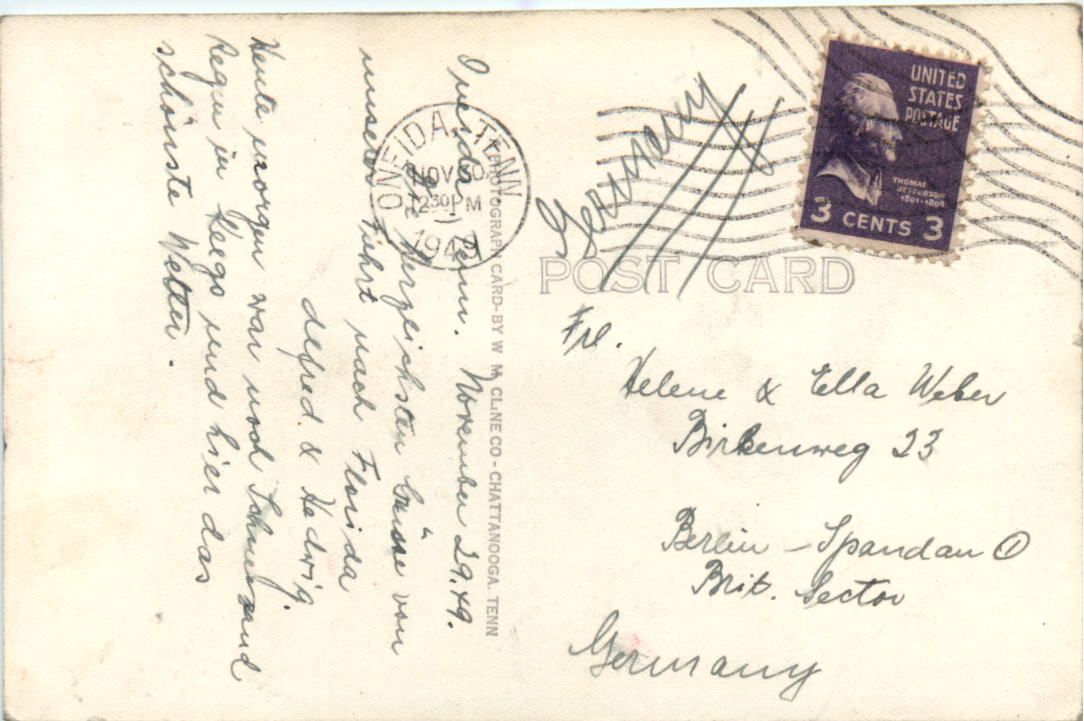 Oneida Tenn. November 29.49.
Die herzlichsten Grüsse von
unserer Fahrt nach Florida
Alfred & Hedwig.
Heute morgen war noch Schnee und
Regen in und hier das
schönste Wetter.
PHOTOGRAPH CARD-BY W M CLINE CO - CHATTANOOGA. TENN
ONEIDA, TENN.
NOV 30
12 30 PM
1949
Germany
UNITED
STATES
POSTAGE
THOMAS
JEFFERSON
1801-1809
3 CENTS 3
POST CARD
Frl.
Helene & Ella Weber
Birkenweg 23
Berlin - Spandau ①
Brit. Sector
Germany